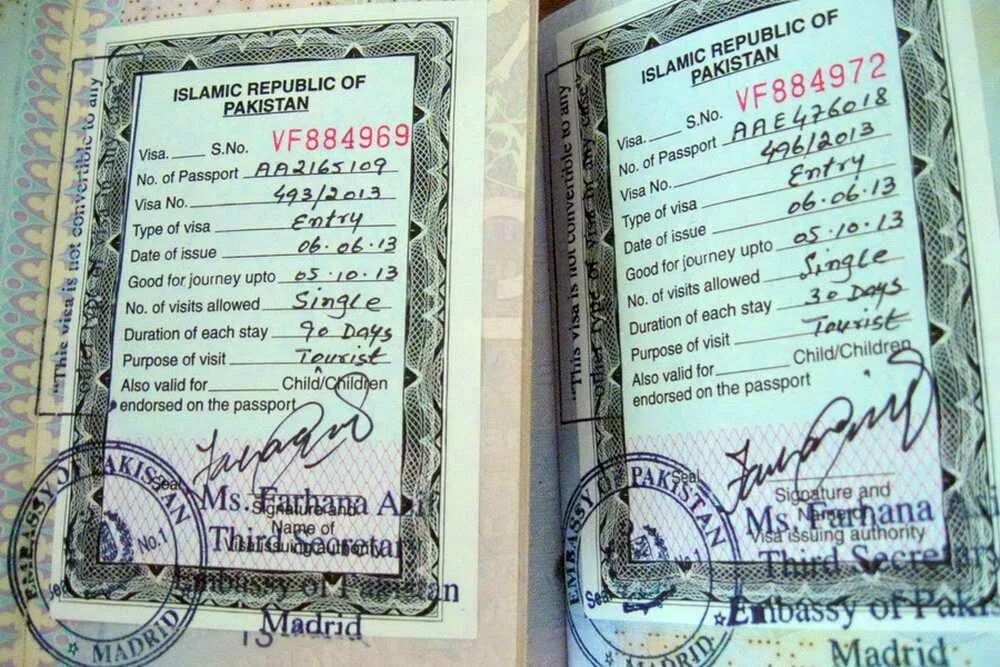 "This visa is not convertible to any
other type of visa in any case
ISLAMIC REPUBLIC OF
PAKISTAN
VF884969
Visa.____ S.No.
No. of Passport AA2165109
Visa No. 493/2013
Type of visa Entry
Date of issue 06.06.13
Good for journey upto 05.10.13
No. of visits allowed Single
Duration of each stay 90 Days
Purpose of visit Tourist
Also valid for____ Child/Children
endorsed on the passport
Seal
Signature and
Name of
Visa issuing authority
Ms. Farhana
Third Secretary
Embassy of Pakistan
Madrid
EMBASSY OF PAKISTAN
No.1
MADRID
13
"This visa is not convertible to any
other type of visa in any case
ISLAMIC REPUBLIC OF
PAKISTAN
VF884972
Visa.____ S.No.
No. of Passport AAE476018
Visa No. 496/2013
Type of visa Entry
Date of issue 06.06.13
Good for journey upto 05.10.13
No. of visits allowed Single
Duration of each stay 30 Days
Purpose of visit Tourist
Also valid for____ Child/Children
endorsed on the passport
Seal
Signature and
Name of
Visa issuing authority
Ms. Farhana
Third Secretary
Embassy of Paki
Madrid
EMBASSY OF PAKISTAN
No.1
MADRID